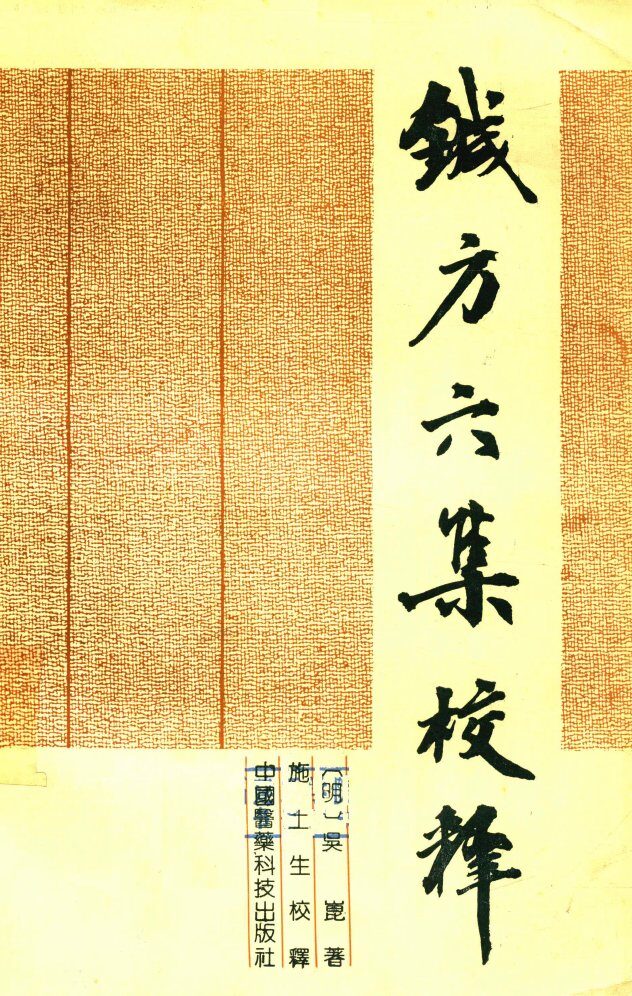 鍼方六集校释
（明）吳崑著
施土生校釋
中國醫藥科技出版社